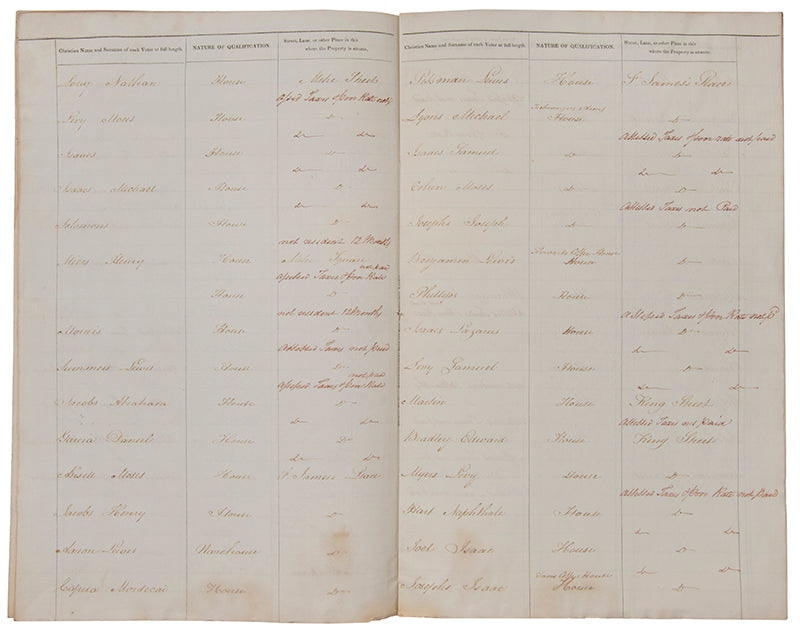 Christian Name and Surname of each Voter at full length.
NATURE OF QUALIFICATION.
Street, Lane, or other Place in this
where the Property is situate.
Levy Nathan House Mitre Street
assd Taxes & Poor Rate not
Levy Moses House Do
do do
Isaacs House Do
do do
Isaacs Michael House Do
do do
Solomons House Do
not resident 12 Months
Miers Henry House Mitre Square
not paid
assessed Taxes & Poor Rate
House Do
not resident 12 Months
Morris House Do
Assessed Taxes not paid
Lewis House Do
not paid
assessed Taxes & Poor Rate
Jacobs Abraham House Do
do do
Garcia Daniel House Do
do do
Ansell Moses House St James's Place
Jacobs Henry House Do
Aaron Lewis Warehouse Do
Mordecai House Do
Christian Name and Surname of each Voter at full length.
NATURE OF QUALIFICATION.
Street, Lane, or other Place in this
where the Property is situate.
Lewis House St James's Place
Lyons Michael House Do
Assessed Taxes & Poor rate not paid
Isaacs Samuel do Do
do do
Cohen Moses do Do
Assessed Taxes not Paid
Josephs Joseph do Do
House
Benjamin Lewis House Do
Phillips House Do
Assessed Taxes & Poor Rate not P
Isaacs Lazarus House Do
do do
Levy Samuel House Do
do do
Martin House King Street
Assessed Taxes not paid
Bradley Edward House King Street
Myers Levy House Do
Assessed Taxes & Poor Rate not Paid
Hart Naphthale House Do
do do
Joel Isaac House Do
do do
House
Josephs Isaac House Do